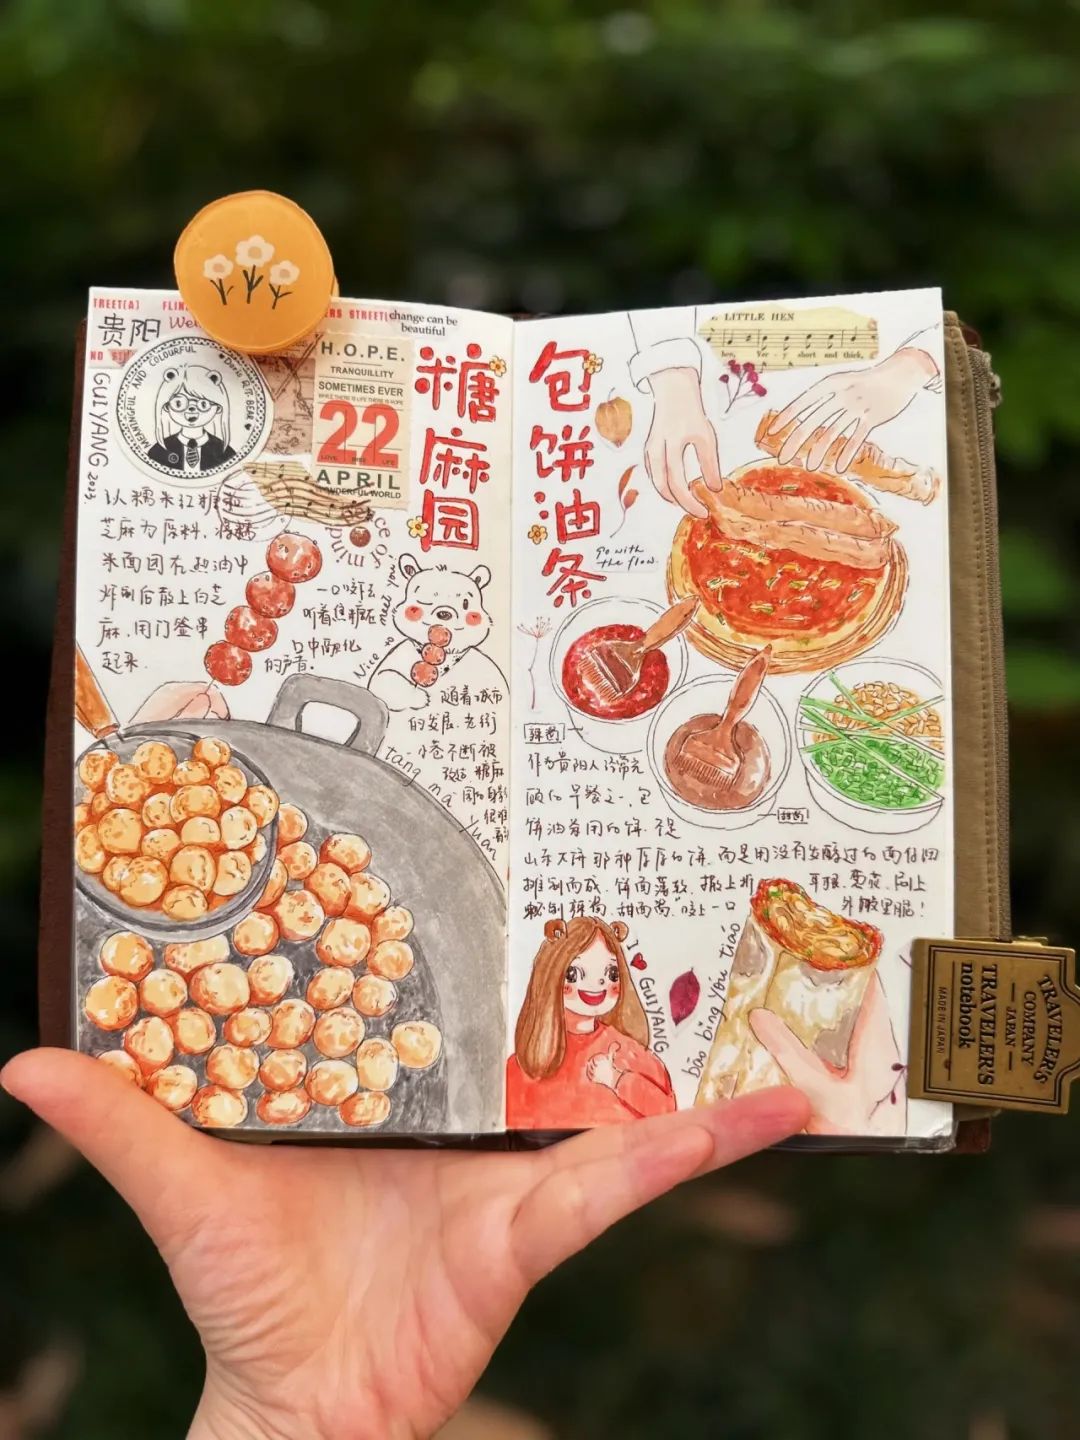 TREET(A)
贵阳
change can be
beautiful
MEANINGFUL AND COLOURFUL
GUIYANG 2023.
H.O.P.E.
TRANQUILLITY
SOMETIMES EVER
22
APRIL
WONDERFUL WORLD
糖麻园
以糯米红糖和
芝麻为原料、将糯
米面团在热油中
炸制后散上白芝
麻,用门签串
起来.
一口咬下去
听着焦糖在
口中融化
的声音。
Nice to meet you
随着城市
的发展,老街
小巷不断被
改造,糖麻
园的身影
很难
tang ma yuan
包饼油条
E LITTLE HEN
hen, Ver - y short and thick,
go with
the flow.
辣酱
甜酱
作为贵阳人经常光
顾的早餐之一,包
饼油条用的饼,不是
山东大饼那种厚厚的饼,而是用没有发酵过的面仔细
摊制而成,饼面薄软,撒上折耳根、葱花,刷上
秘制辣酱,甜面酱,咬上一口外酥里脆!
I GUIYANG
bāo bǐng yóu tiáo
TRAVELER'S
COMPANY
JAPAN
TRAVELER'S
notebook
MADE IN JAPAN